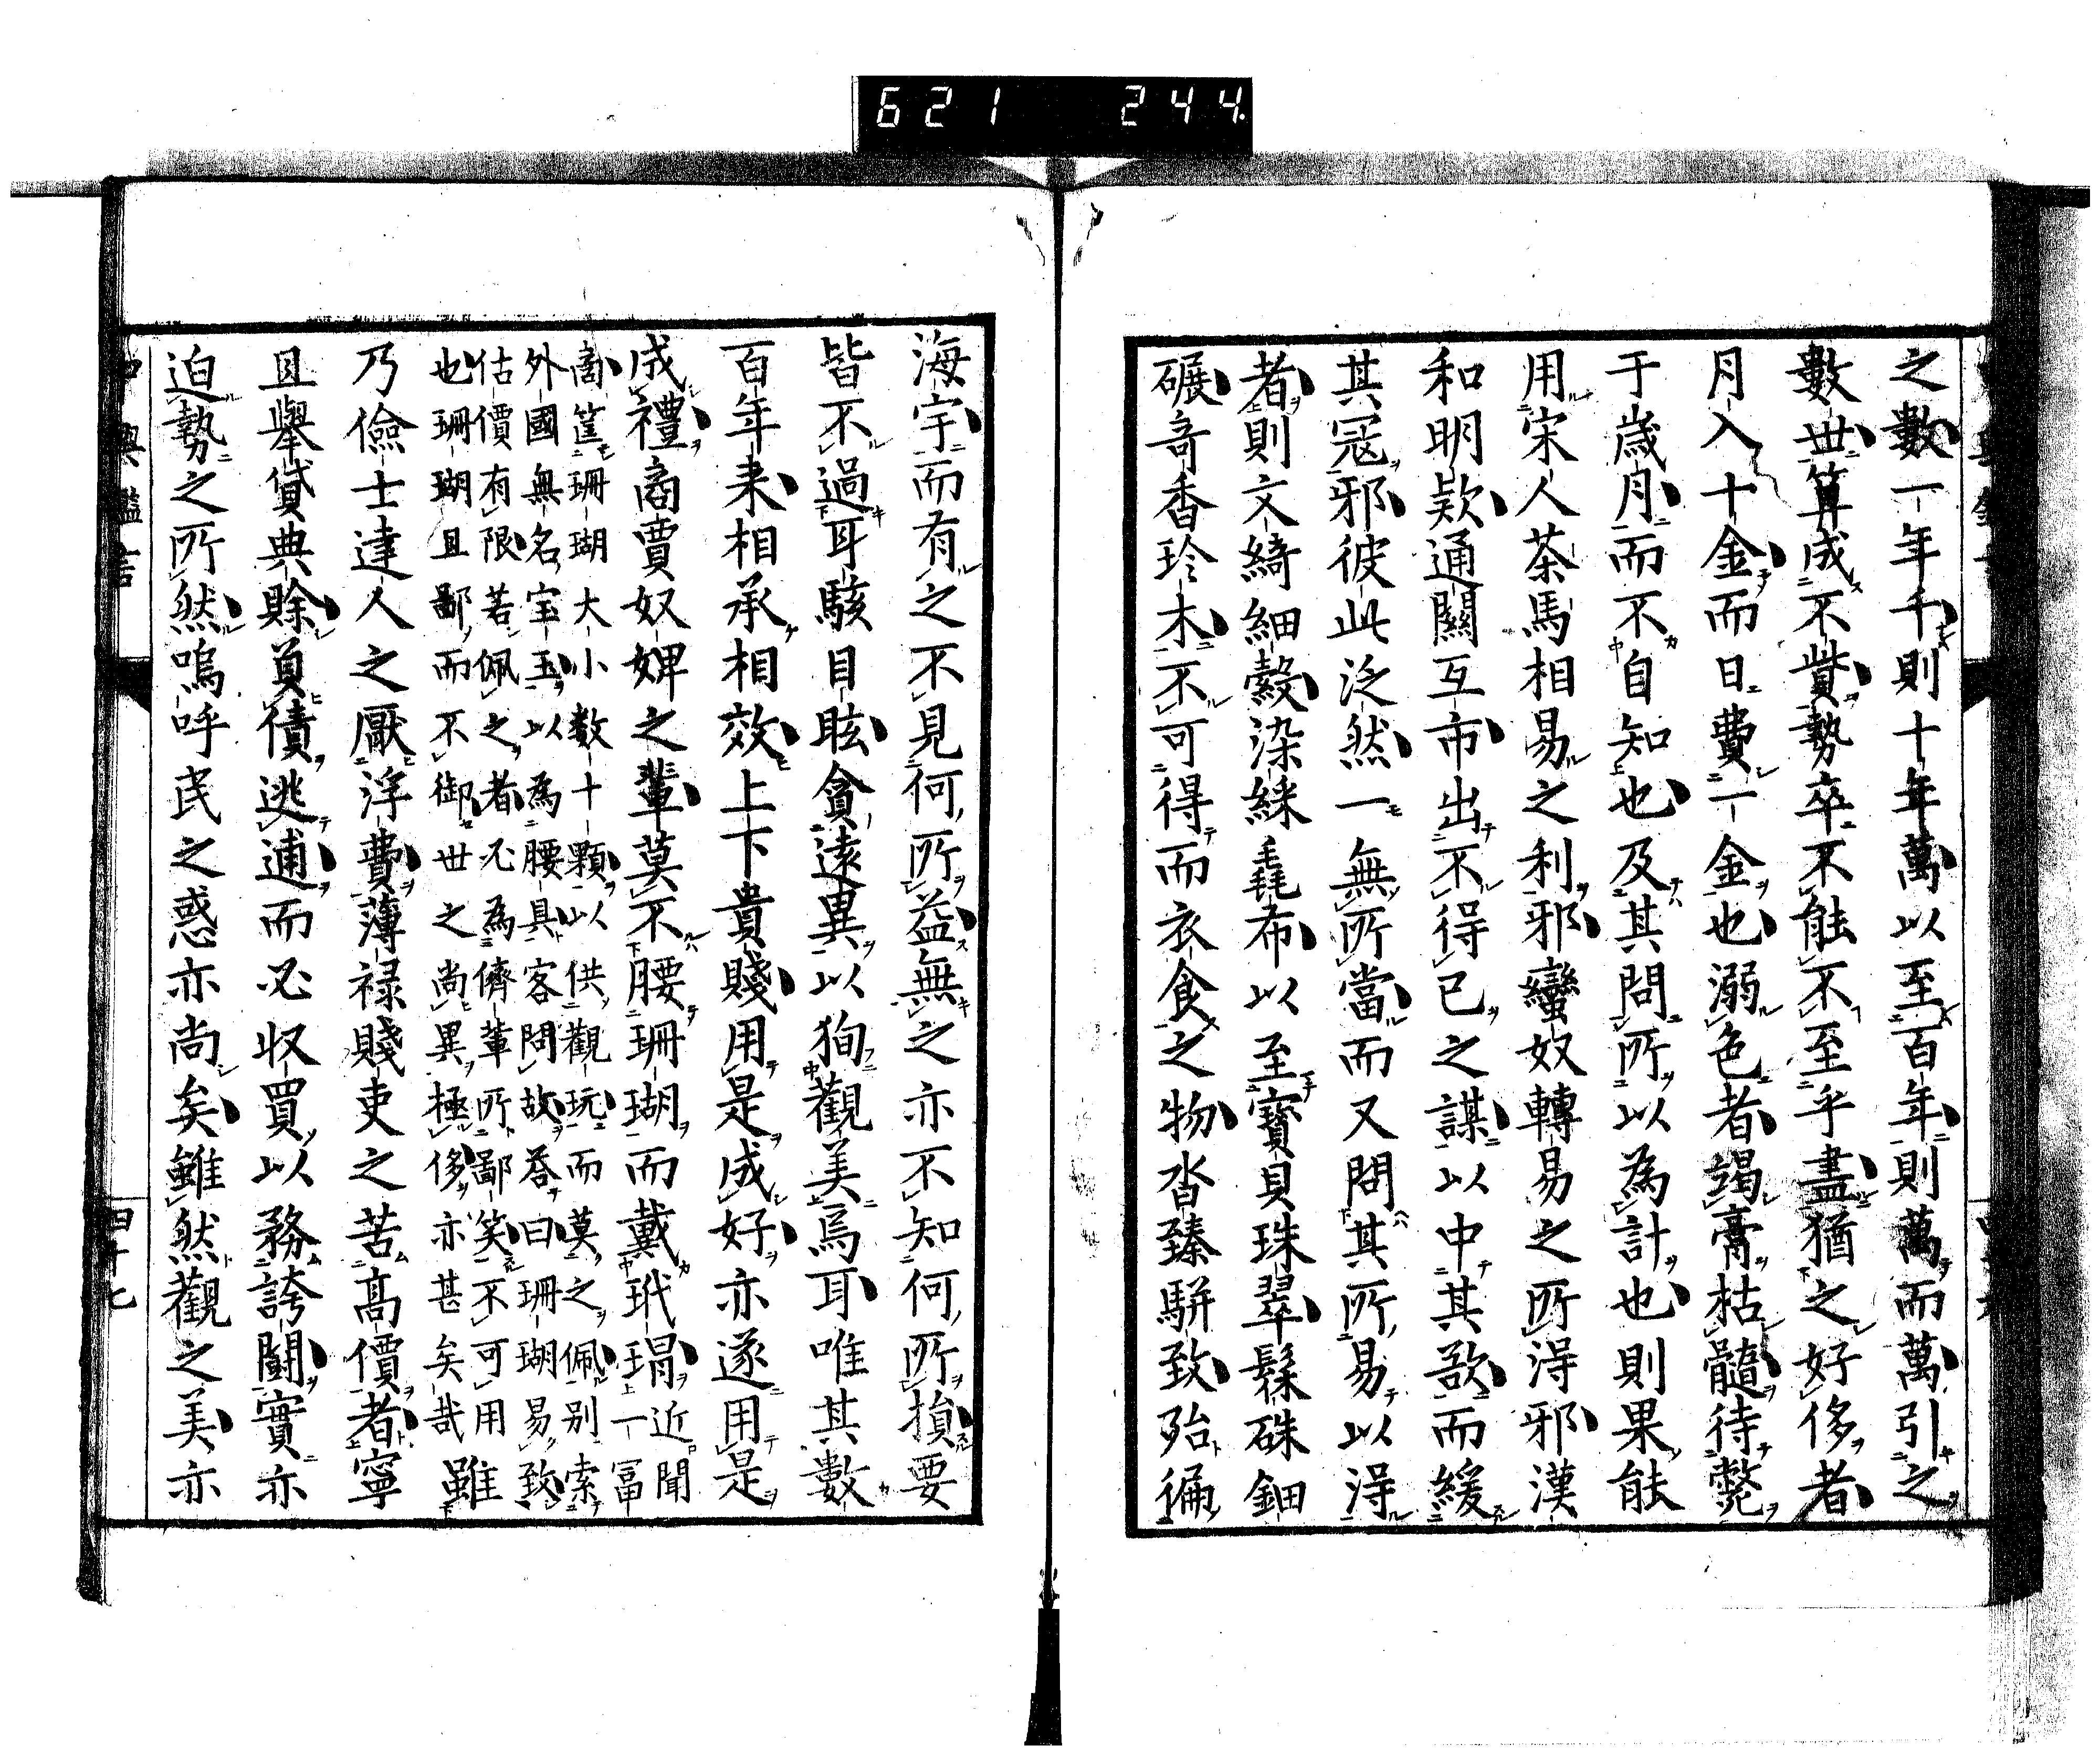 621 244
之數一年千則十年萬以至百年則萬而萬引之
數世算成不貲勢卒不能不至乎盡猶之好侈者
月入十金而日費一金也溺色者竭膏枯髓待斃
于歲月而不自知也及其問所以為計也則果能
用宋人茶馬相易之利邪蠻奴轉易之所得邪漢
和明欵通關互市出不得已之謀以中其欲而緩
其寇邪彼此泛然一無所當而又問其所易以得
者則文綺細縠染綵毳布以至寶貝珠翠鬘硃鈿
碾奇香珍木不可得而衣食之物沓臻駢致殆徧
海宇而有之不見何所益無之亦不知何所損要
皆不過耳駭目眩貪遠異以狥觀美焉耳唯其數
百年来相承相效上下貴賤用是成好亦遂用是
成禮商賈奴婢之輩莫不腰珊瑚而戴玳瑁近聞一冨
商筐珊瑚大小数十顆以供觀玩而莫之佩别索
外國無名宝玉以為腰具客問故答曰珊瑚易致
估價有限若佩之者不為儕輩所鄙笑不可用
也珊瑚且鄙而不御世之尚異極侈亦甚矣哉雖
乃儉士達人之厭浮費薄禄賤吏之苦高價者寧
且舉貸典賖負債逃逋而必収買以務誇鬪實亦
迫勢之所然嗚呼民之惑亦尚矣雖然觀之美亦
四十七